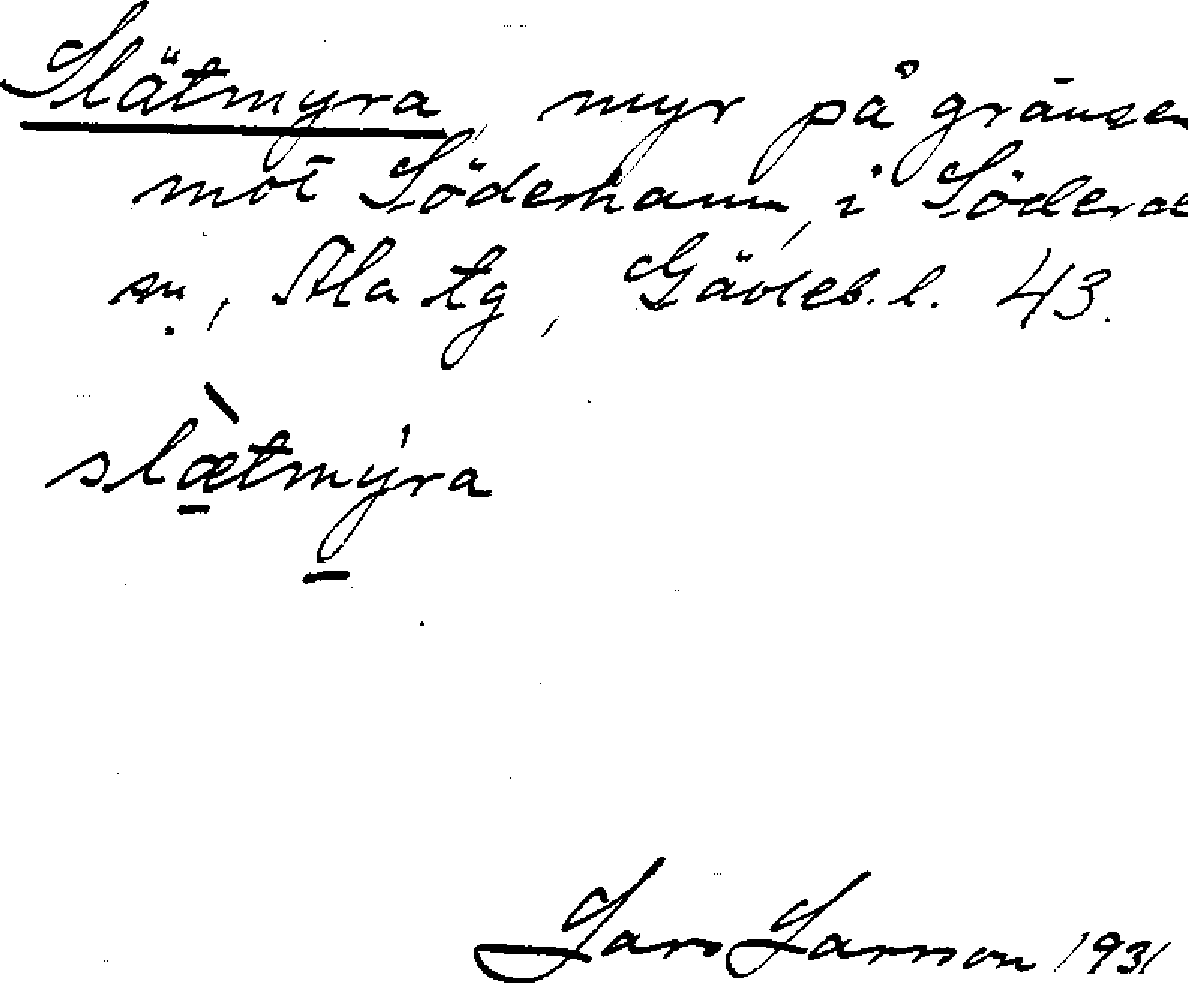 Slätmyra, myr på gränsen
mot Söderhamn, i Söderal
sn, Ala tg, Gävleb. l. 43.
slæ̀tmýra
Lars Larsson 1931